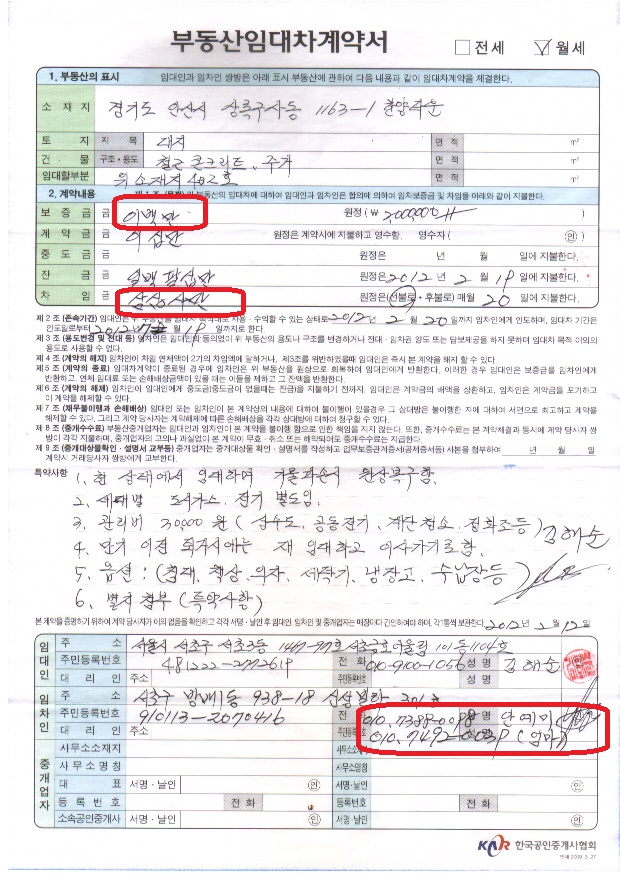 부동산임대차계약서 □전세 ☑월세
1. 부동산의 표시 임대인과 임차인 쌍방은 아래 표시 부동산에 관하여 다음 내용과 같이 임대차계약을 체결한다.
소재지 경기도 안산시 상록구 사동 1163-1 한양타운
토지 지목 대지 면적 ㎡
건물 구조·용도 철근콘크리트, 주거 면적 ㎡
임대할부분 위 소재지 402호 면적 ㎡
2. 계약내용 제 1 조 (목적) 위 부동산의 임대차에 대하여 임대인과 임차인은 합의에 의하여 임차보증금 및 차임을 아래와 같이 지불한다.
보증금 금 이백만 원정 (₩ 2,000,000 )
계약금 금 이십만 원정은 계약시에 지불하고 영수함. 영수자 ( 인)
중도금 금 원정은 년 월 일에 지불한다.
잔금 금 일백팔십만 원정은 2012년 2월 19일에 지불한다.
차임 금 원정은 (선불로·후불로) 매월 20 일에 지불한다.
제 2 조 (존속기간) 임대인은 위 부동산을 임대차 목적대로 사용·수익할 수 있는 상태로 2012년 2월 20일까지 임차인에게 인도하며, 임대차 기간은
인도일로부터 2012년 월 19일까지로 한다.
제 3 조 (용도변경 및 전대 등) 임차인은 임대인의 동의없이 위 부동산의 용도나 구조를 변경하거나 전대·임차권 양도 또는 담보제공을 하지 못하며 임대차 목적 이외의
용도로 사용할 수 없다.
제 4 조 (계약의 해지) 임차인이 차임 연체액이 2기의 차임액에 달하거나, 제3조를 위반하였을때 임대인은 즉시 본 계약을 해지 할 수 있다.
제 5 조 (계약의 종료) 임대차계약이 종료된 경우에 임차인은 위 부동산을 원상으로 회복하여 임대인에게 반환한다. 이러한 경우 임대인은 보증금을 임차인에게
반환하고, 연체 임대료 또는 손해배상금액이 있을 때는 이들을 제하고 그 잔액을 반환한다.
제 6 조 (계약의 해제) 임차인이 임대인에게 중도금(중도금이 없을때는 잔금)을 지불하기 전까지, 임대인은 계약금의 배액을 상환하고, 임차인은 계약금을 포기하고
이 계약을 해제할 수 있다.
제 7 조 (채무불이행과 손해배상) 임대인 또는 임차인이 본 계약상의 내용에 대하여 불이행이 있을경우 그 상대방은 불이행한 자에 대하여 서면으로 최고하고 계약을
해제할 수 있다. 그리고 계약 당사자는 계약해제에 따른 손해배상을 각각 상대방에 대하여 청구할 수 있다.
제 8 조 (중개수수료) 부동산중개업자는 임대인과 임차인이 본 계약을 불이행 함으로 인한 책임을 지지 않는다. 또한, 중개수수료는 본 계약체결과 동시에 계약 당사자 쌍
방이 각각 지불하며, 중개업자의 고의나 과실없이 본 계약이 무효·취소 또는 해약되어도 중개수수료는 지급한다.
제 9 조 (중개대상물확인·설명서 교부등) 중개업자는 중개대상물 확인·설명서를 작성하고 업무보증관계증서(공제증서등) 사본을 첨부하여 년 월 일
계약시 거래당사자 쌍방에게 교부한다.
특약사항
1. 현 상태에서 임대하며 기물파손시 원상복구함.
2. 세대별 도시가스. 전기 별도임.
3. 관리비 30,000원 (상수도, 공동전기, 계단청소, 정화조등) 김해순
4. 만기 이전 퇴거시에는 재 임대하고 이사가기로 함.
5. 옵션 : (침대, 책상, 의자, 세탁기, 냉장고, 수납장등)
6. 별지 첨부 (특약사항)
본 계약을 증명하기 위하여 계약 당사자가 이의 없음을 확인하고 각각 서명·날인 후 임대인, 임차인 및 중개업자는 매장마다 간인하여야 하며, 각1통씩 보관한다. 2012년 2월 12일
임대인 주소 서울시 서초구 서초3동 101동 1104호
주민등록번호 481222-2772619 전화 010-9100-1056 성명 김해순
대리인 주소 주민등록번호 성명
임차인 주소 서초구 방배1동 938-18 301호
주민등록번호 910113-2070416 전화 010.7388-0088 성명 안예미
대리인 주소 주민등록번호 010.7492-0039 (엄마)
중개업자 사무소소재지 사무소소재지
사무소명칭 사무소명칭
대표 서명·날인 인 서명·날인 인
등록번호 전화 등록번호 전화
소속공인중개사 서명·날인 인 서명·날인 인
KAR 한국공인중개사협회